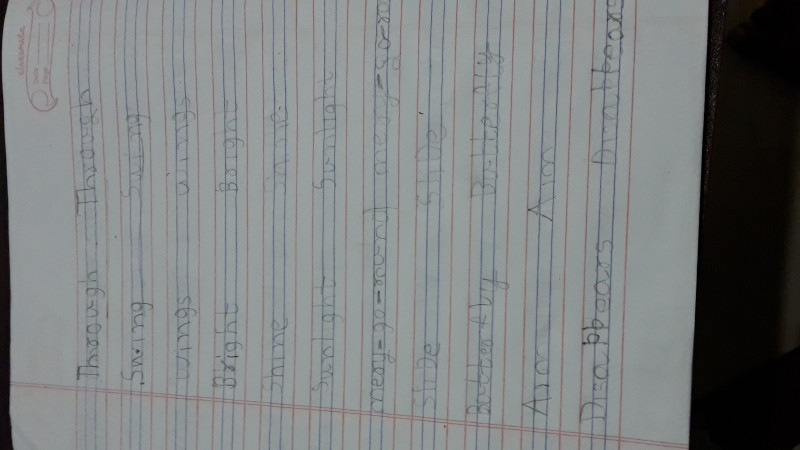 Through Through
Swing Swing
wings wings
Bright Bright
Shine Shine
Sunlight Sunlight
mery-go-round mery-go-ro
Slide Slide
Butterfly Butterfly
Arm Arm
Disappears Disappears